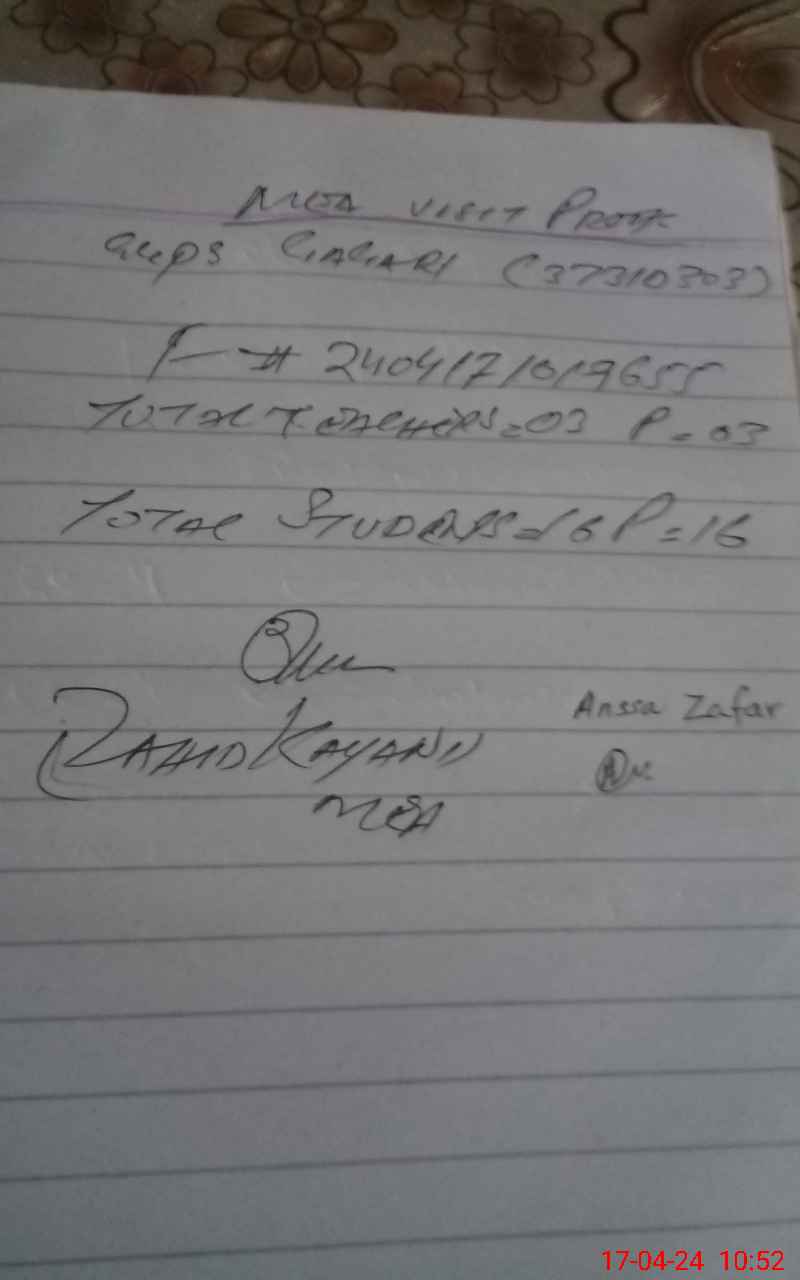 MEA VISIT PROOF
GGPS GAGARI (37310303)
F-# 240417/019655
TOTAL TEACHERS=03 P=03
TOTAL STUDENTS=16 P=16
KAYANI
MEA
Anssa Zafar
17-04-24 10:52